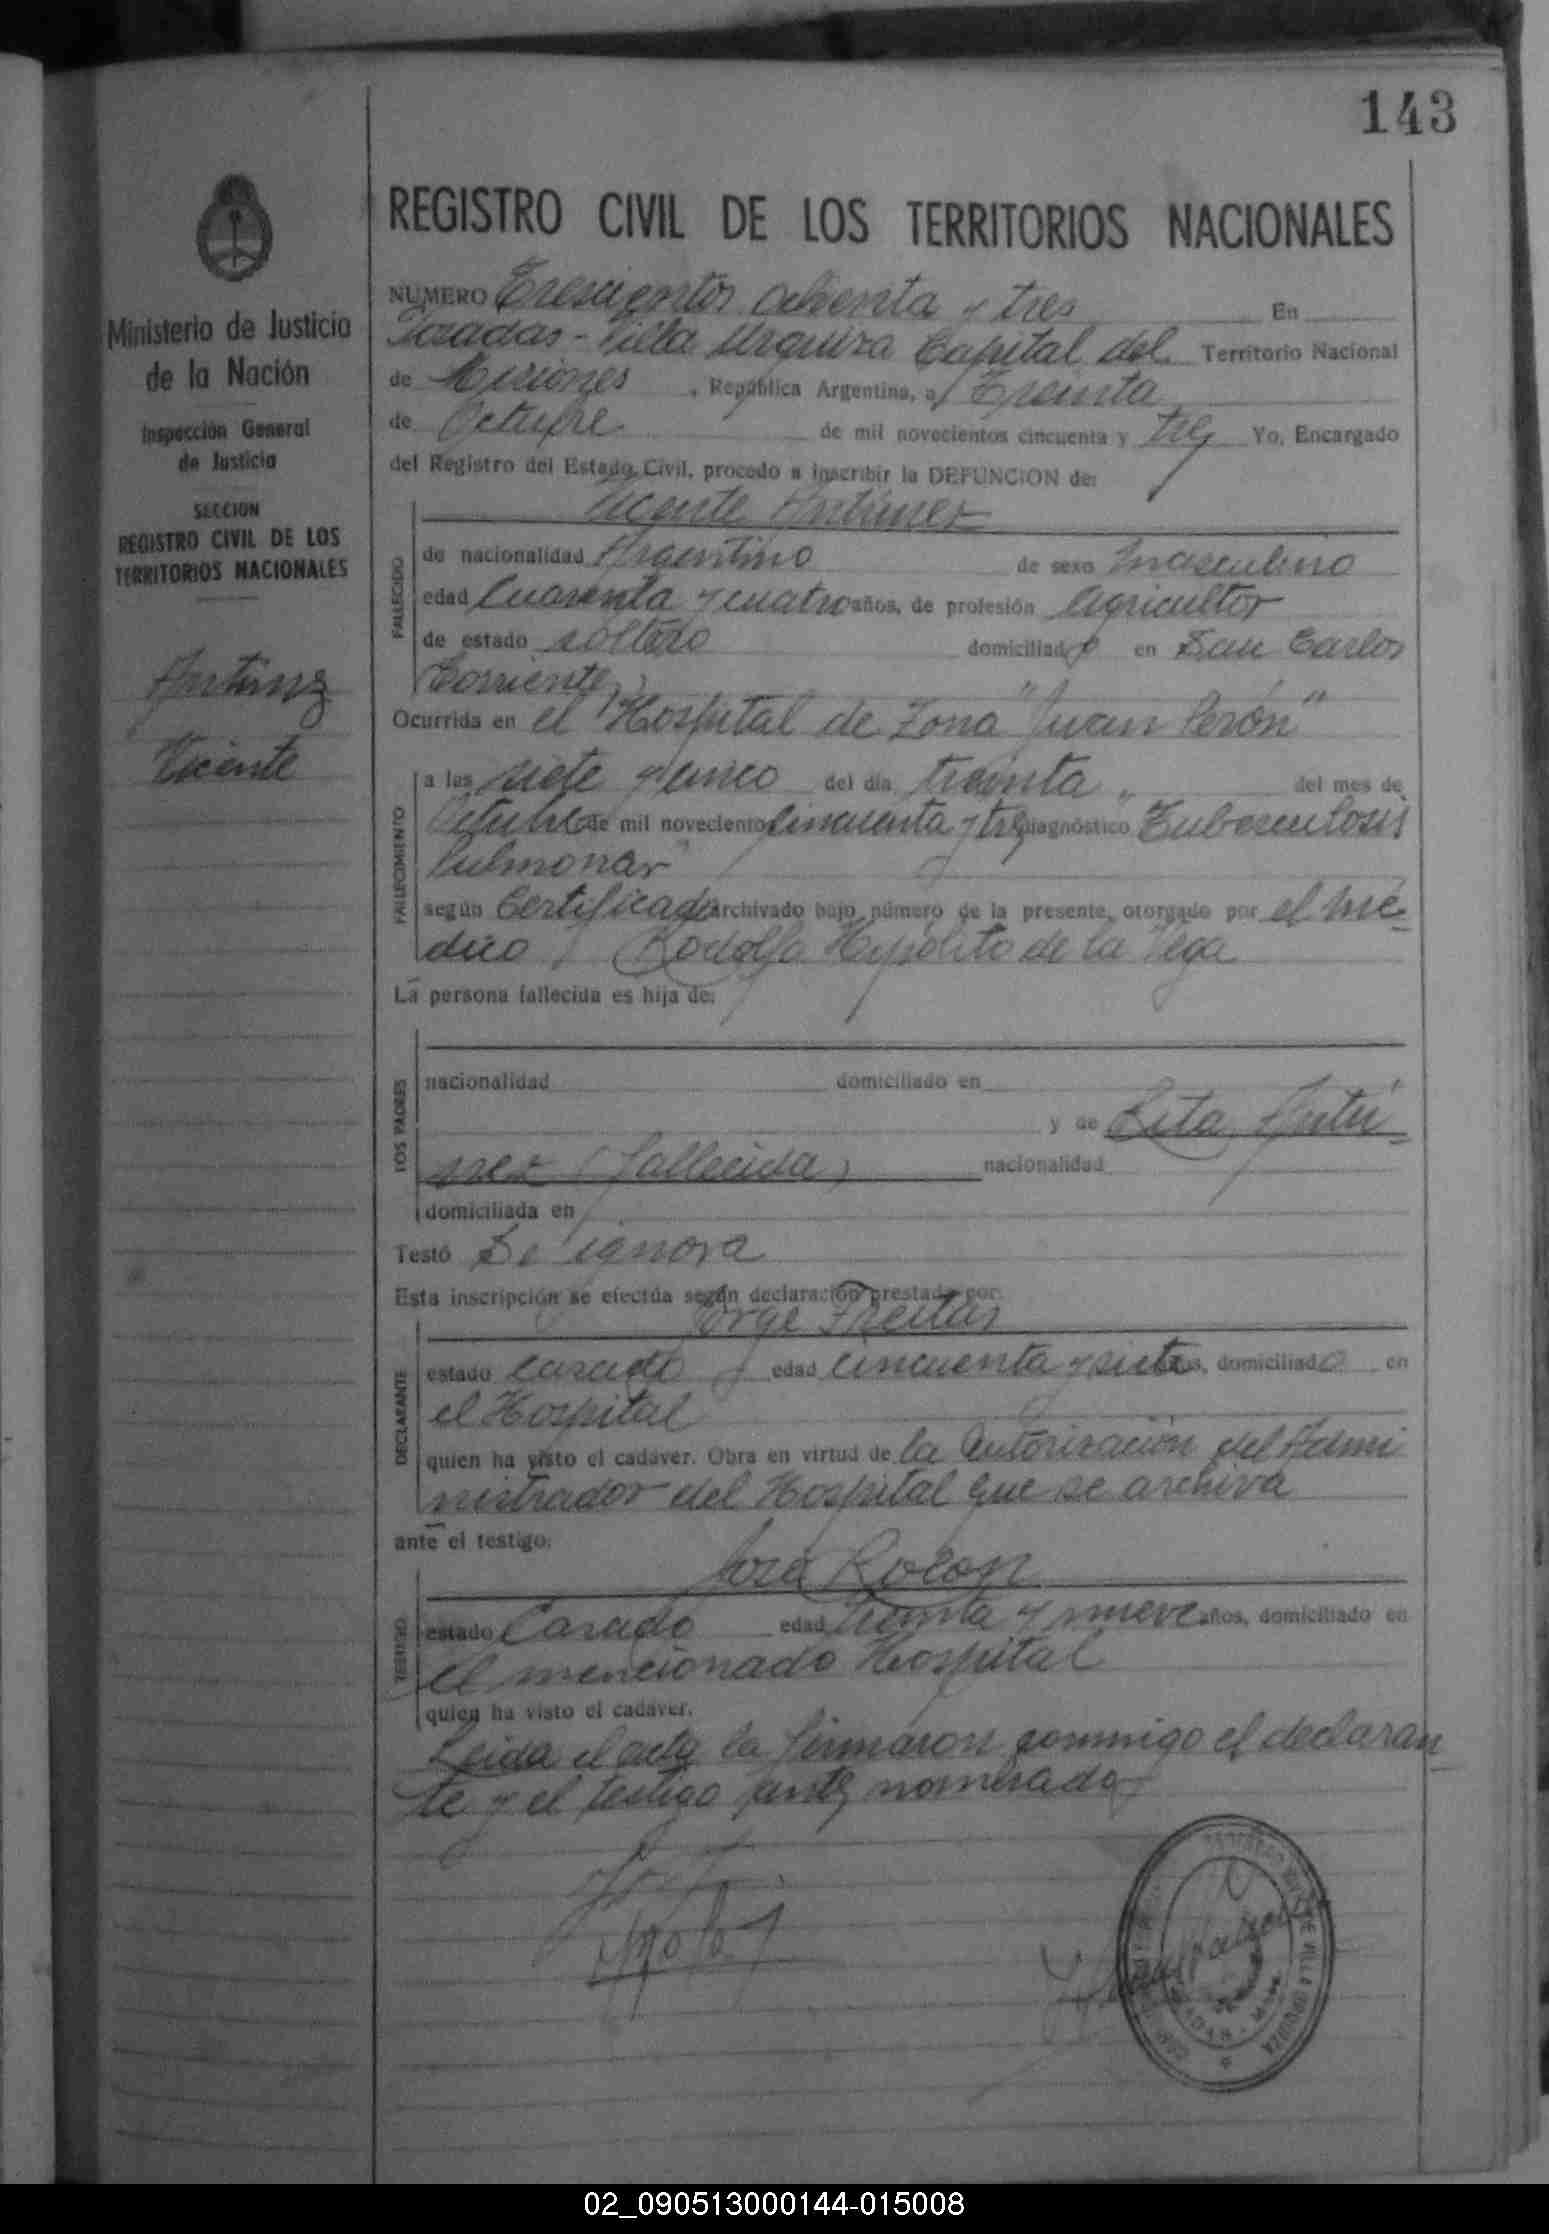 143
REGISTRO CIVIL DE LOS TERRITORIOS NACIONALES
Ministerio de Justicia
de la Nación
Inspección General
de Justicia
SECCION
REGISTRO CIVIL DE LOS
TERRITORIOS NACIONALES
Antúnez
Vicente
NUMERO Trescientos ochenta y tres En
Posadas - Villa Urquiza Capital del Territorio Nacional
de Misiones, República Argentina, a Treinta
de Octubre de mil novecientos cincuenta y tres Yo, Encargado
del Registro del Estado Civil, procedo a inscribir la DEFUNCION de:
Vicente Antúnez
FALLECIDO
de nacionalidad Argentino de sexo masculino
edad Cuarenta y cuatro años, de profesión Agricultor
de estado soltero domiciliado en San Carlos
Corrientes
Ocurrida en el Hospital de Zona "Juan Perón"
FALLECIMIENTO
a las siete y cinco del día treinta del mes de
Octubre de mil novecientos Cincuenta y tres diagnóstico Tuberculosis
Pulmonar"
según Certificado archivado bajo número de la presente, otorgado por el mé-
dico Rodolfo Hypólito de la Vega
La persona fallecida es hija de:
LOS PADRES
nacionalidad domiciliado en
y de Rita Antú-
nez (fallecida) nacionalidad
domiciliada en
Testó Se ignora
Esta inscripción se efectúa según declaración prestada por:
Jorge Freitas
DECLARANTE
estado Casado edad cincuenta y siete años, domiciliado en
el Hospital
quien ha visto el cadáver. Obra en virtud de la autorización del Admi
nistrador del Hospital que se archiva
ante el testigo:
José Rolon
TESTIGO
estado Casado edad treinta y nueve años, domiciliado en
el mencionado Hospital
quien ha visto el cadáver.
Leida el acta la firmaron conmigo el declaran-
te y el testigo antes nombrado
02_090513000144-015008